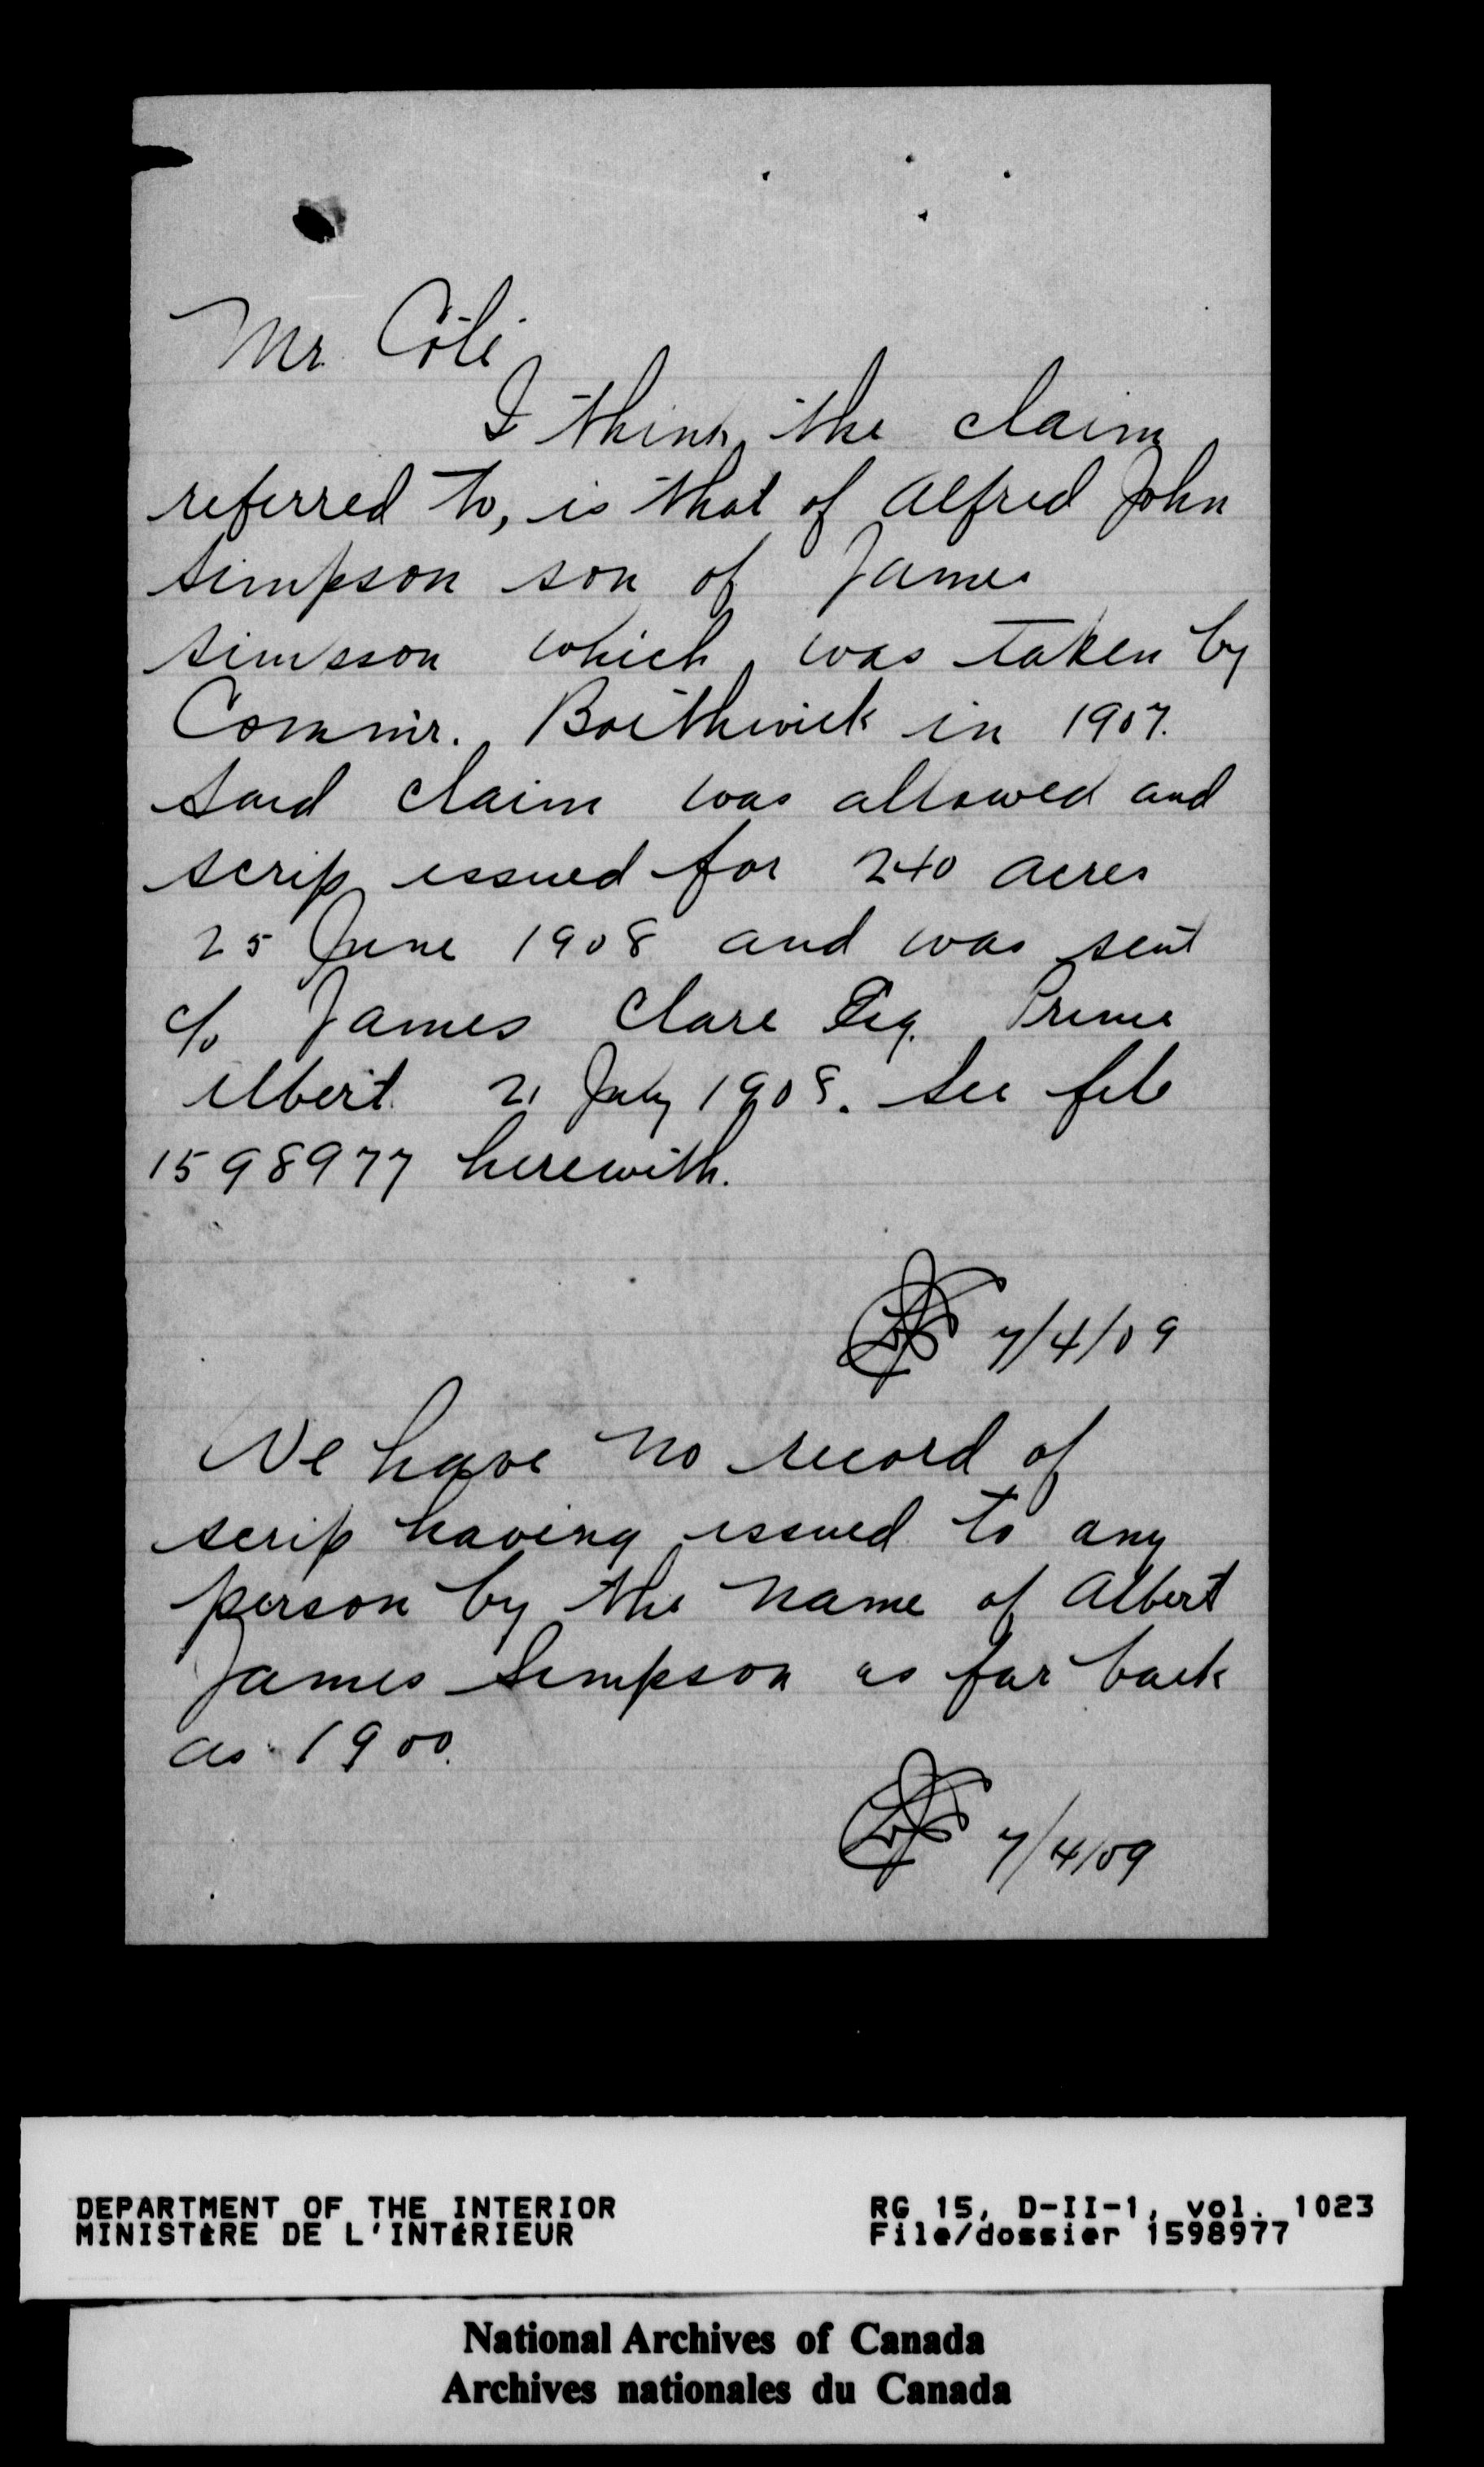 Mr. Côté
I think the claim
referred to, is that of Alfred John
Simpson son of James
Simpson which was taken by
Commr. Borthwick in 1907.
Said claim was allowed and
scrip issued for 240 acres
25 June 1908 and was sent
c/o James Clare Esq. Prince
Albert 21 July 1908. See file
1598977 herewith.
7/4/09
We have no record of
scrip having issued to any
person by the name of Albert
James Simpson as far back
as 1900.
7/4/09
DEPARTMENT OF THE INTERIOR RG 15, D-II-1, vol. 1023
MINISTÈRE DE L'INTÉRIEUR File/dossier 1598977
National Archives of Canada
Archives nationales du Canada